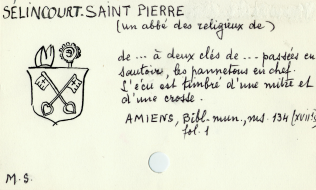 SÉLINCOURT. SAINT PIERRE
(un abbé des religieux de)
de ... à deux clés de ... passées en
sautoir, les pannetons en chef.
L'écu est timbré d'une mitre et
d'une crosse.
AMIENS, Bibl. mun., ms. 134 (XVIIIe)
fol. 1
M.S.